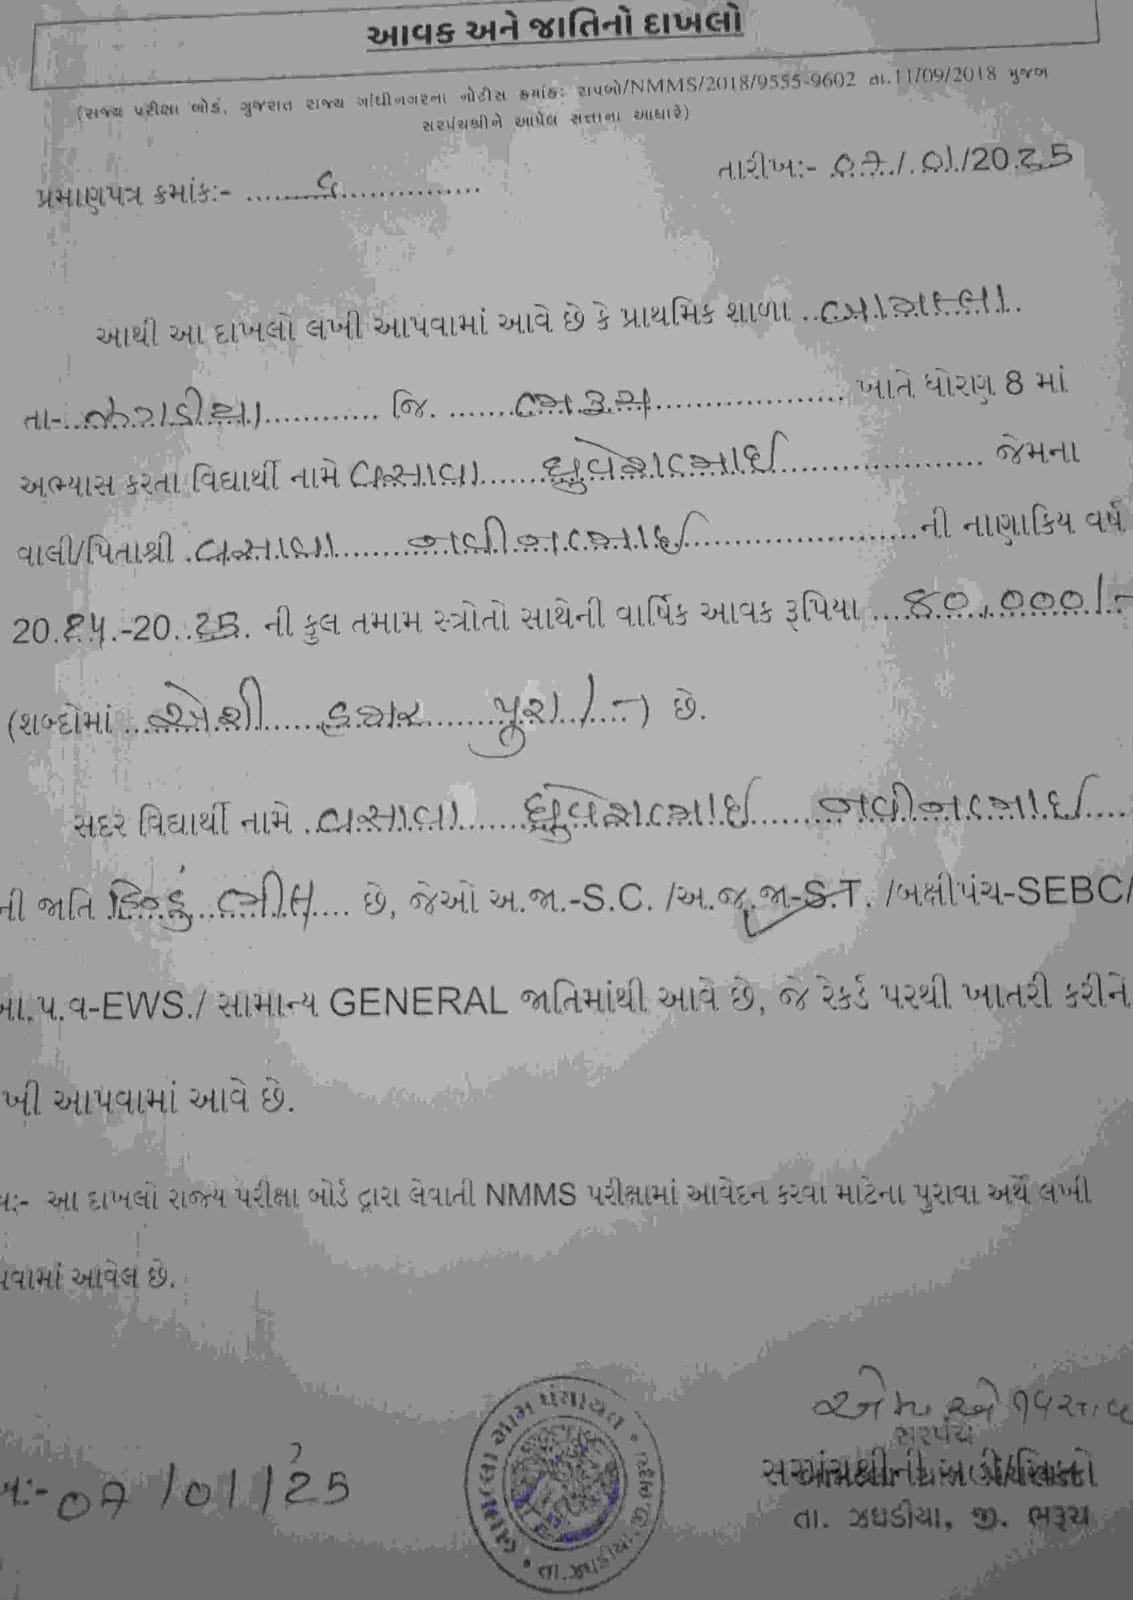 આવક અને જાતિનો દાખલો
(રાજ્ય પરીક્ષા બોર્ડ, ગુજરાત રાજ્ય ગાંધીનગરના નોટીસ ક્રમાંક: રાપબો/NMMS/2018/9555-9602 તા.11/09/2018 મુજબ
સરપંચશ્રીને આપેલ સત્તાના આધારે)
તારીખ:- 07/01/2025
પ્રમાણપત્ર ક્રમાંક:-
આથી આ દાખલો લખી આપવામાં આવે છે કે પ્રાથમિક શાળા
તા- ઝગડીયા જિ. ભરૂચ ખાતે ધોરણ 8 માં
અભ્યાસ કરતા વિદ્યાર્થી નામે વસાવા ધ્રુવેશભાઈ જેમના
વાલી/પિતાશ્રી વસાવા નવીનભાઈ ની નાણાકિય વર્ષ
20.24.-20.25. ની કુલ તમામ સ્ત્રોતો સાથેની વાર્ષિક આવક રૂપિયા ૮૦,૦૦૦/-
(શબ્દોમાં એંશી હજાર પુરા/-) છે.
સદર વિદ્યાર્થી નામે વસાવા ધ્રુવેશભાઈ નવીનભાઈ
ની જાતિ હિન્દુ ભીલ છે, જેઓ અ.જા.-S.C. /અ.જ.જા-S.T. /બક્ષીપંચ-SEBC/
આ.પ.વ-EWS./ સામાન્ય GENERAL જાતિમાંથી આવે છે, જે રેકર્ડ પરથી ખાતરી કરીને
ખી આપવામાં આવે છે.
:- આ દાખલો રાજ્ય પરીક્ષા બોર્ડ દ્વારા લેવાતી NMMS પરીક્ષામાં આવેદન કરવા માટેના પુરાવા અર્થે લખી
પવામાં આવેલ છે.
સરપંચ
:- 07/01/25
તા. ઝઘડીયા, જી. ભરૂચ
ગ્રામ પંચાયત